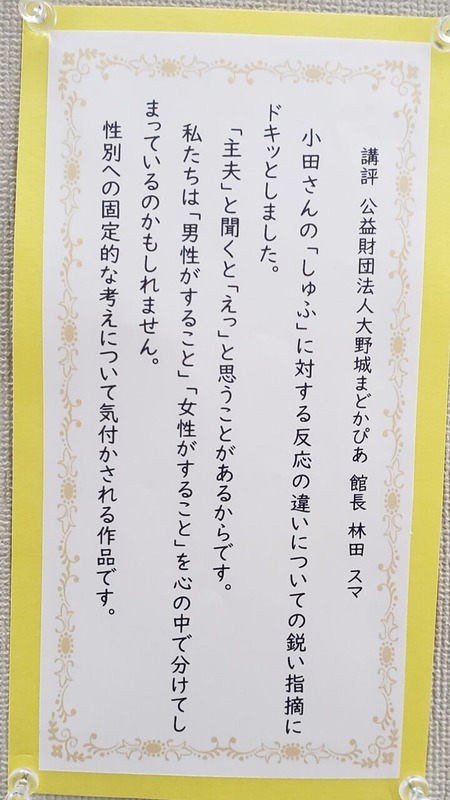 講評 公益財団法人大野城まどかぴあ 館長 林田 スマ
小田さんの「しゅふ」に対する反応の違いについての鋭い指摘に
ドキッとしました。
「主夫」と聞くと「えっ」と思うことがあるからです。
私たちは「男性がすること」「女性がすること」を心の中で分けてし
まっているのかもしれません。
性別への固定的な考えについて気付かされる作品です。